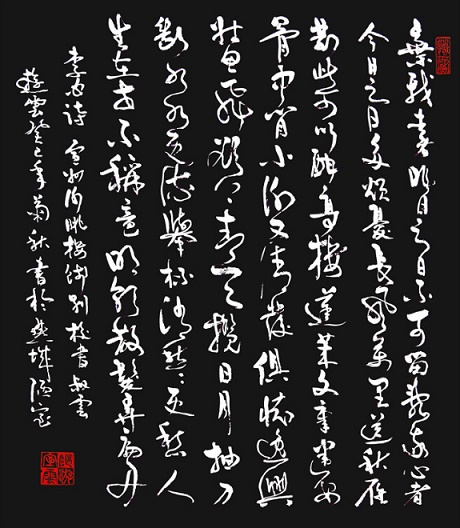 棄我去者昨日之日不可留亂我心者
今日之日多煩憂長風萬里送秋雁
對此可以酣高樓蓬萊文章建安
骨中間小謝又清發俱懷逸興
壯思飛欲上青天攬日月抽刀
斷水水更流舉杯消愁愁更愁人
生在世不稱意明朝散髮弄扁舟
李白詩 宣州謝朓樓餞別校書叔雲
雲癸巳年菊秋書於陋室